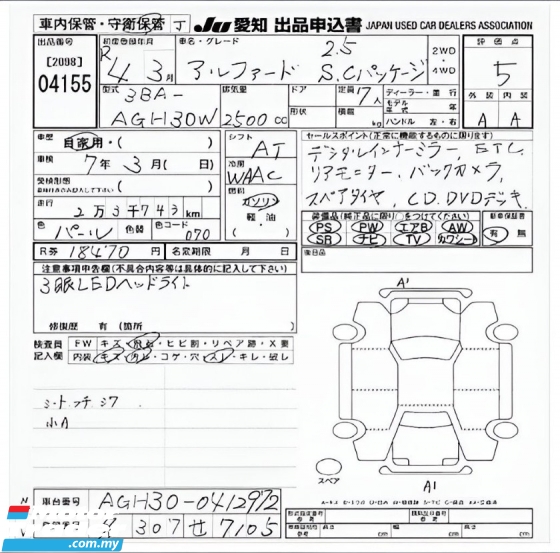 車内保管・守衛保管 J JU 愛知 出品申込書 JAPAN USED CAR DEALERS ASSOCIATION
出品番号
[2098]
04155
初度登録年月
R 4年 3月
車名・グレード
アルファード 2.5 S.Cパッケージ
2WD
・
4WD
評価点
5
外装 内装
A A
型式
3BA-
AGH30W
排気量
2500cc
ドア
形状
定員 7人
積載 kg
ディーラー・並行
モデル
年式 年
ハンドル 左・右
車歴
自家用・( )
車検
7年 3月( 日)
受検形態
(車検受渡のみ記入して下さい)
走行
2万3千743km
色 パール 色替 色コード 070
R券 18470円 名変期限 月 日
シフト
AT
冷房
WAAC
燃料
ガソリン
軽油
( )
セールスポイント(正常に機能するものに限ります)
デジタルインナーミラー、ETC、
リアモニター、バックカメラ、
スペアタイヤ、CD、DVDデッキ、
装備品(純正品に限り○をつけてください)
PS PW エアB AW
SR ナビ TV カワシート
新車保証書
有 無
後日品
注意事項申告欄(不具合内容等は具体的に記入して下さい)
3眼LEDヘッドライト
修復歴 有 (箇所
検査員
記入欄
FW キズ・飛石・ヒビ割・リペア跡・X要
内装 キズ・汚レ・コゲ・穴・スレ・キレ・破レ
シートフチシワ
小A
A1
スペア
A1
車台番号 AGH30-0412972
307 せ 7105
長さ cm 幅 cm 高さ cm
.com.my